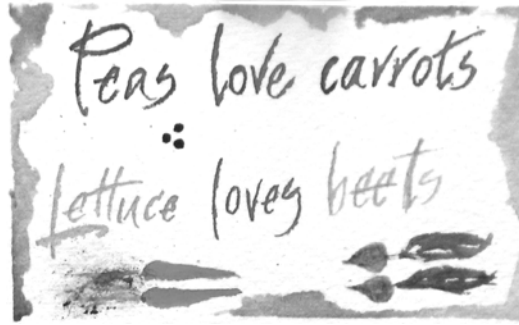 Peas love carrots
Lettuce loves beets